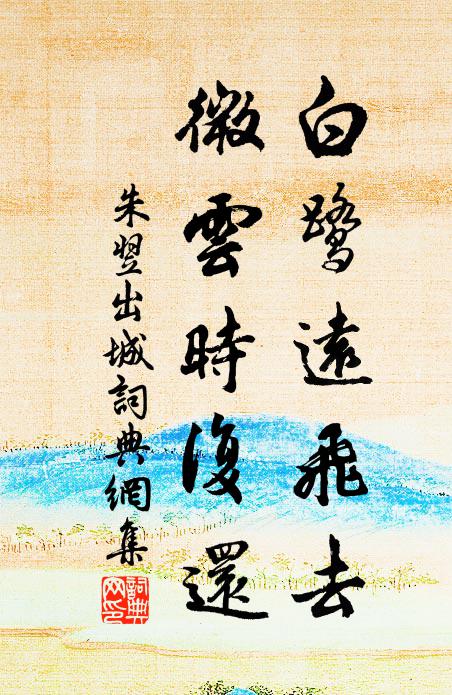 白鷺遠飛去
微雲時復還
朱翌出城詞典網集
詞典